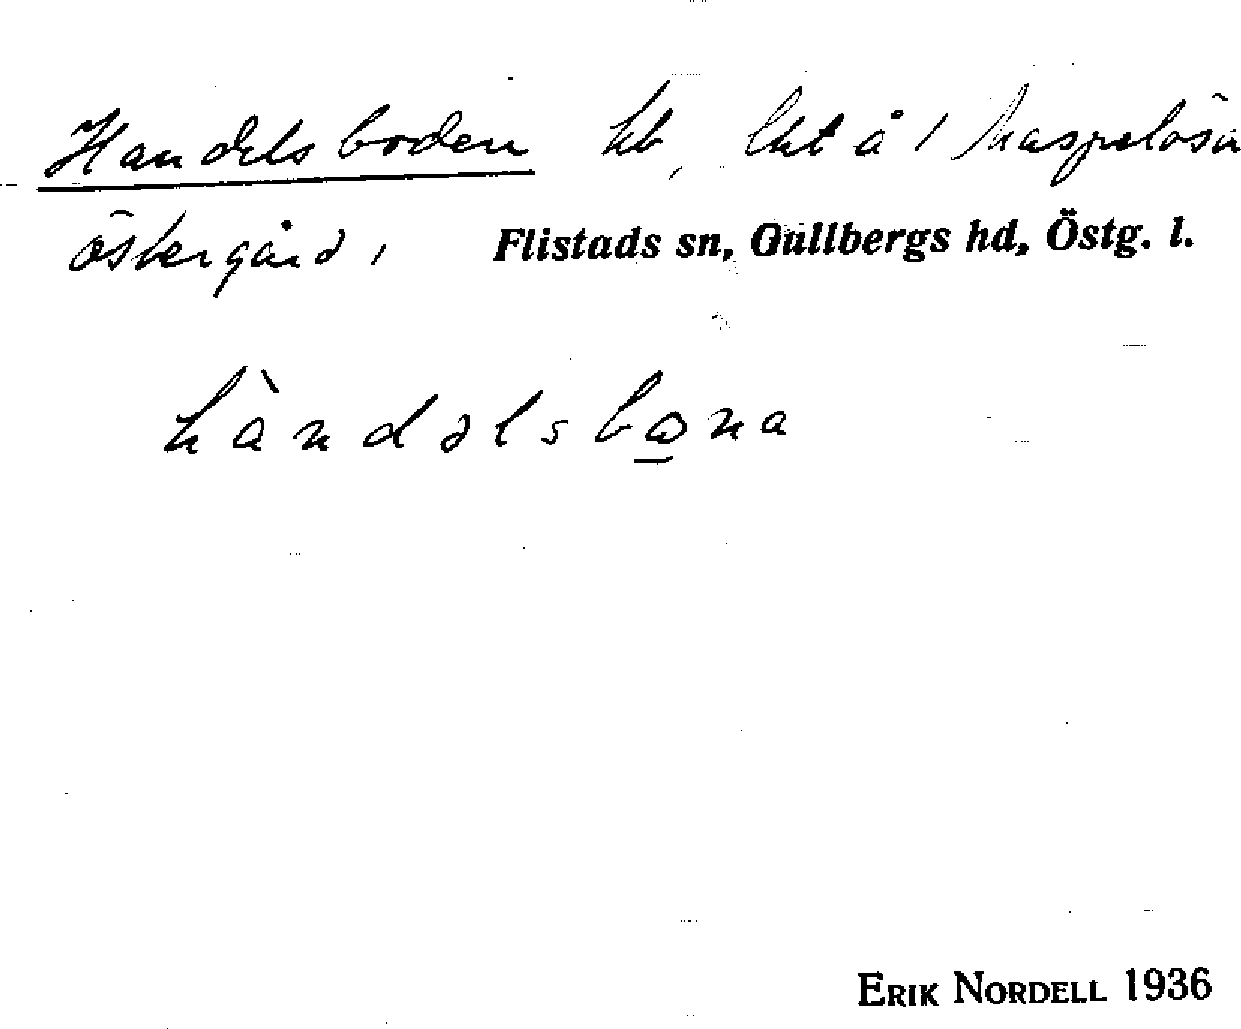 Handelsboden hb, lht å 1 haspelösa
östergård, Flistads sn, Gullbergs hd, Östg. l.
hàndəlsbωna
ERIK NORDELL 1936